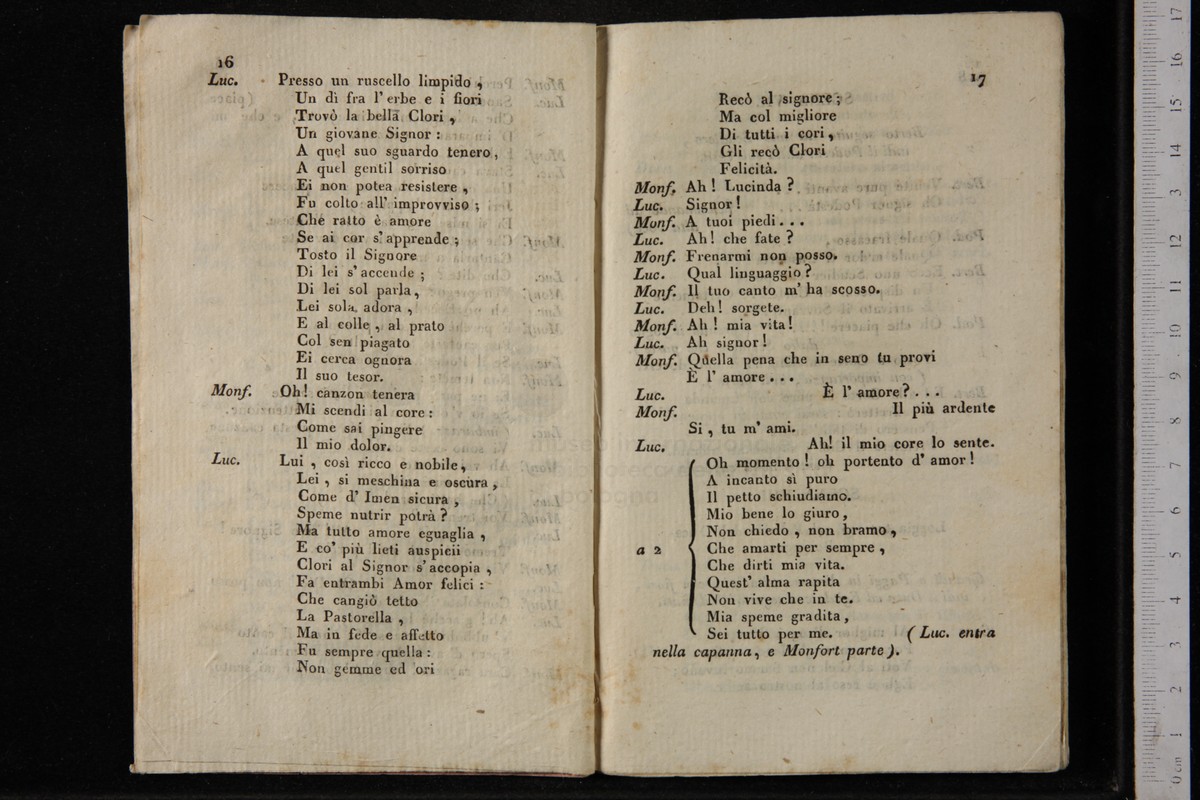 16
Luc. Presso un ruscello limpido,
Un dì fra l'erbe e i fiori
Trovò la bella Clori,
Un giovane Signor:
A quel suo sguardo tenero,
A quel gentil sorriso
Ei non potea resistere,
Fu colto all' improvviso;
Chè ratto è amore
Se ai cor s'apprende;
Tosto il Signore
Di lei s'accende;
Di lei sol parla,
Lei sola adora,
E al colle, al prato
Col sen piagato
Ei cerca ognora
Il suo tesor.
Monf. Oh! canzon tenera
Mi scendi al core:
Come sai pingere
Il mio dolor.
Luc. Lui, così ricco e nobile,
Lei, sì meschina e oscura,
Come d' Imen sicura,
Speme nutrir potrà?
Ma tutto amore eguaglia,
E co' più lieti auspicii
Clori al Signor s'accopia,
Fa entrambi Amor felici:
Che cangiò tetto
La Pastorella,
Ma in fede e affetto
Fu sempre quella:
Non gemme ed ori
17
Recò al signore;
Ma col migliore
Di tutti i cori,
Gli recò Clori
Felicità.
Monf. Ah! Lucinda?
Luc. Signor!
Monf. A tuoi piedi...
Luc. Ah! che fate?
Monf. Frenarmi non posso.
Luc. Qual linguaggio?
Monf. Il tuo canto m' ha scosso.
Luc. Deh! sorgete.
Monf. Ah! mia vita!
Luc. Ah signor!
Monf. Quella pena che in seno tu provi
È l' amore...
Luc. È l' amore?...
Monf. Il più ardente
Si, tu m' ami.
Luc. Ah! il mio core lo sente.
Oh momento! oh portento d' amor!
A incanto sì puro
Il petto schiudiamo.
Mio bene lo giuro,
Non chiedo, non bramo,
a 2 Che amarti per sempre,
Che dirti mia vita.
Quest' alma rapita
Non vive che in te.
Mia speme gradita,
Sei tutto per me. (Luc. entra
nella capanna, e Monfort parte).
0 cm 1 2 3 4 5 6 7 8 9 10 11 12 13 14 15 16 17